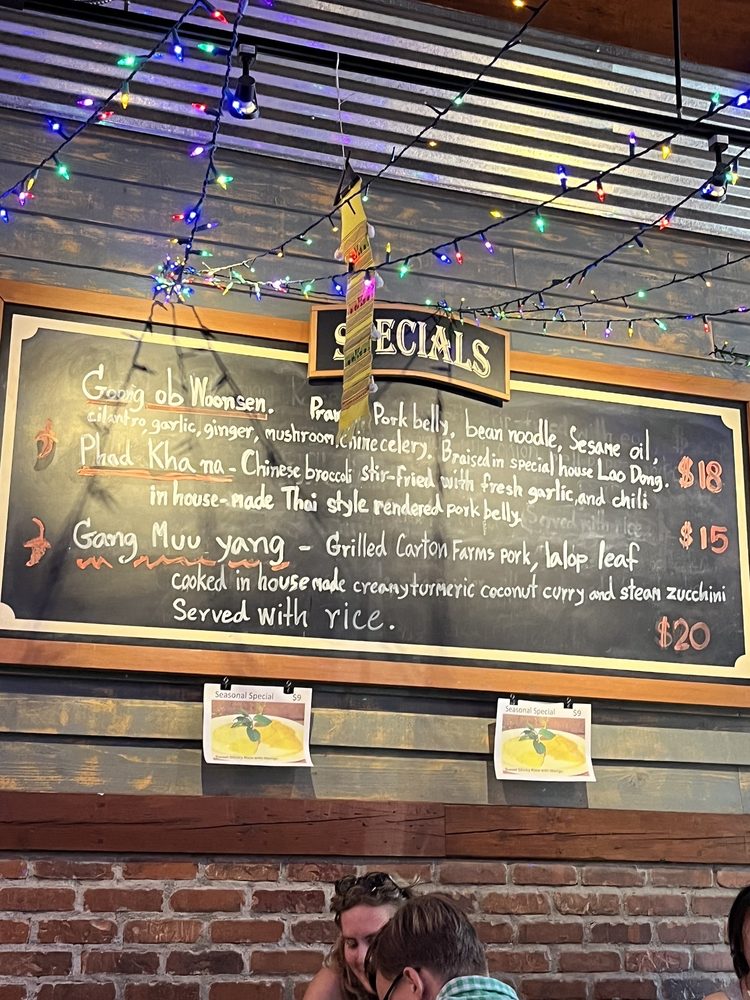 SPECIALS
Goong ob Woonsen. Pork belly, bean noodle, Sesame oil,
cilantro, garlic, ginger, mushroom, chinecelery. Braised in special house Lao Dong. $18
Phad Khana - Chinese broccoli stir-fried with fresh garlic, and chili
in house-made Thai style rendered pork belly. $15
Gang Muu yang - Grilled Carton Farms pork, lalop leaf
cooked in housemade creamy turmeric coconut curry and steam zucchini
Served with rice. $20
Seasonal Special $9
Sweet Sticky Rice with Mango
Seasonal Special $9
Sweet Sticky Rice with Mango